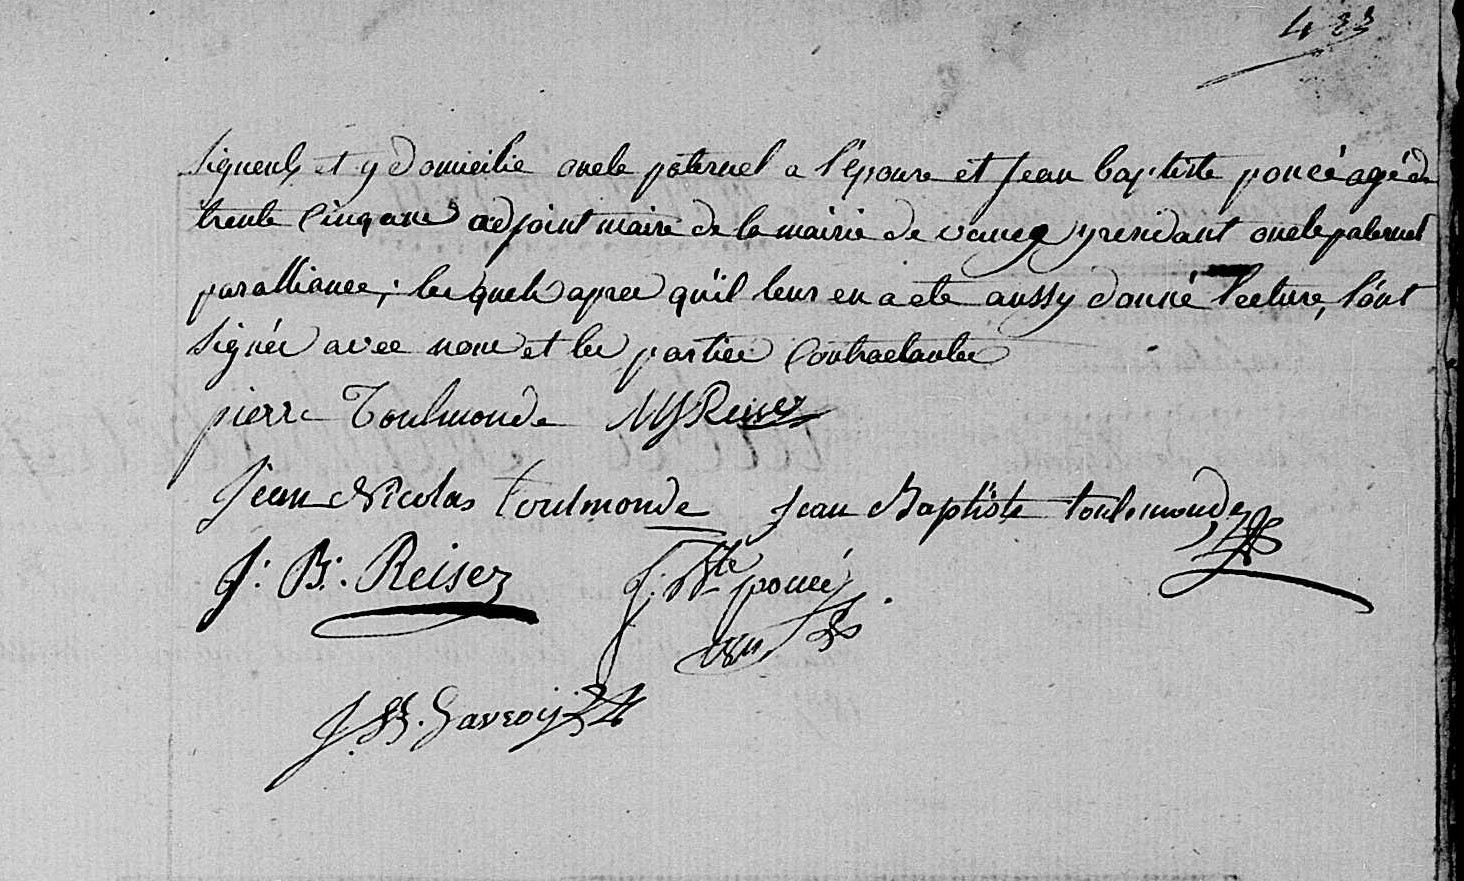 433
signeulx et y domicilie oncle paternel a l'épouse et Jean baptiste poncé agé de
trente cinq ans adjoint maire de la mairie de vaucq y residant oncle paternel
par alliance; les quels apres qu'il leur en a ete aussy donné lecture, l'ont
signée avec nous et les parties contractantes
pierre Toulmonde MJ Reiser
Jean Nicolas toulmonde jean Baptiste toulemonde
J: B: Reiser J: Bte poncé
J. B. Gavroy